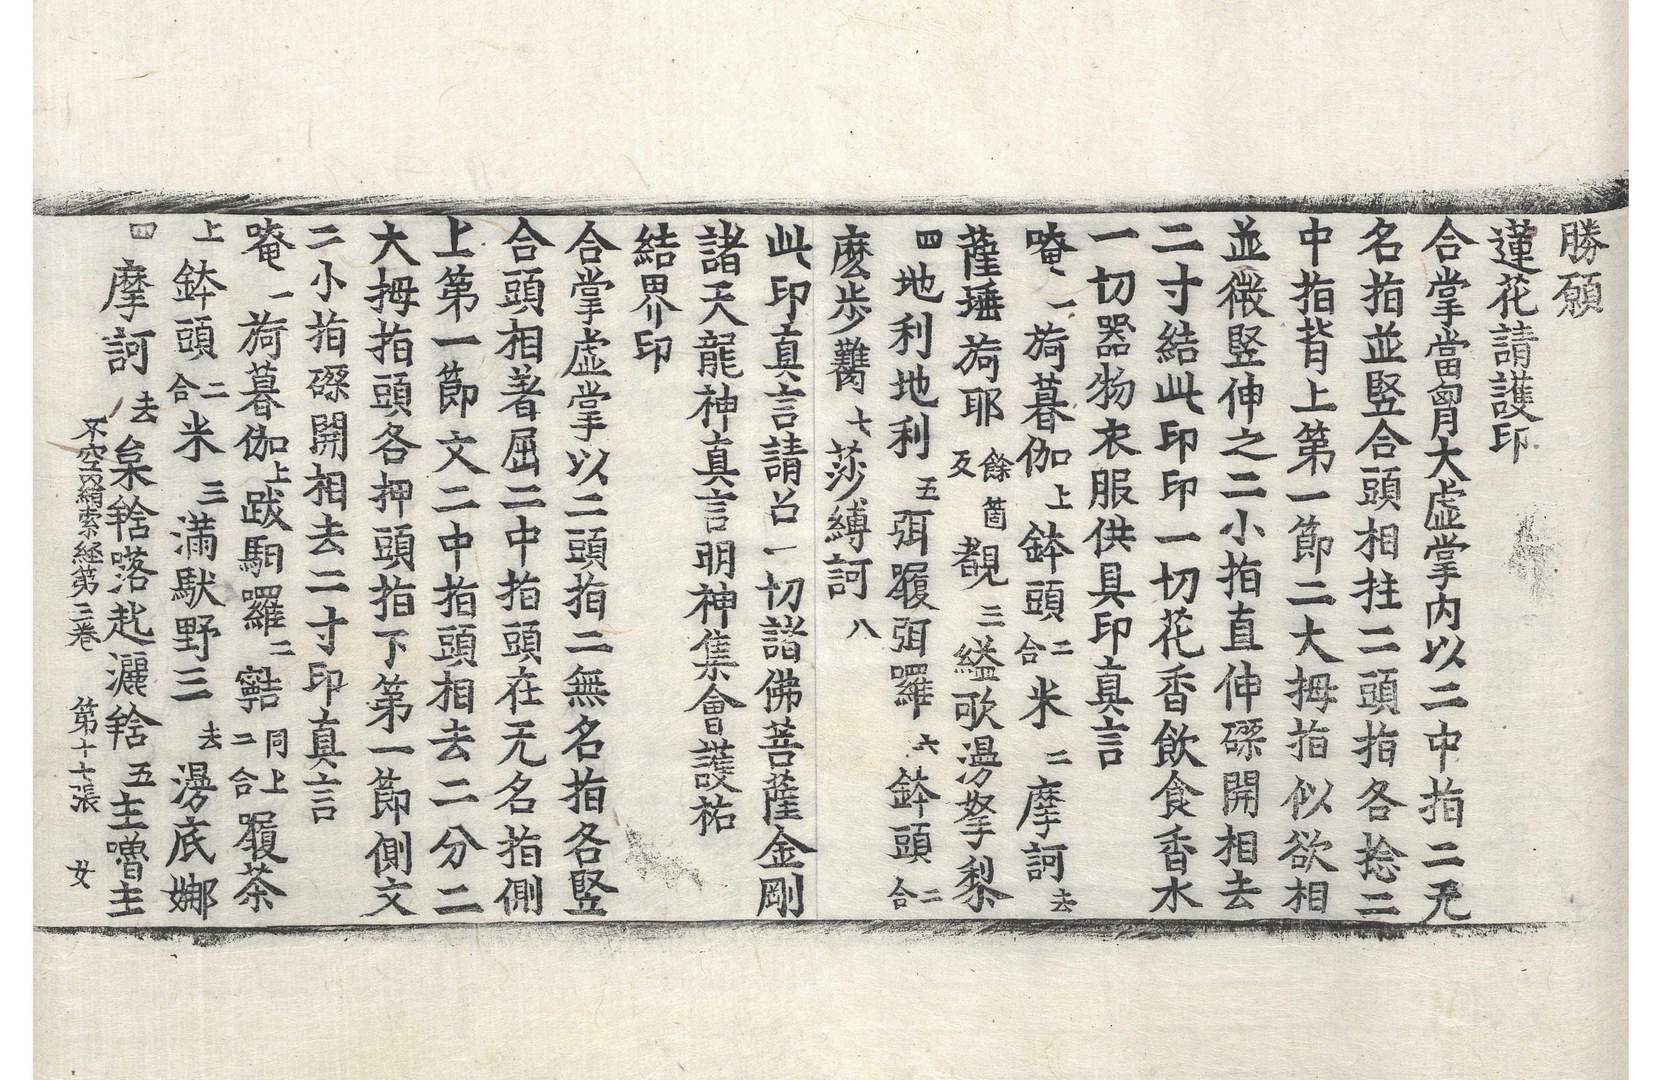 勝願
蓮花請護印
合掌當胷大虛掌内以二中指二无
名指並竪合頭相拄二頭指各捻二
中指背上第一節二大拇指似欲相
並微竪伸之二小指直伸磔開相去
二寸結此印印一切花香飲食香水
一切器物衣服供具印真言
唵一旖暮伽上鉢頭二合米二摩訶去
薩埵旖耶餘箇反覩三縒歌漫拏黎
四地利地利五弭履弭囉六鉢頭二合
麽歩鸛七莎縛訶八
此印真言請召一切諸佛菩薩金剛
諸天龍神真言明神集會護祐
結界印
合掌虛掌以二頭指二無名指各竪
合頭相著屈二中指頭在无名指側
上第一節文二中指頭相去二分二
大拇指頭各押頭指下第一節側文
二小指磔開相去二寸印真言
唵一旖暮伽上跋馹囉二䆿同上二合履茶
上鉢頭二合米三滿馱野三去漫底娜
四摩訶去𡘜㗌尨灑㗌五主嚕主
不空羂索経第三卷　第十七張　女